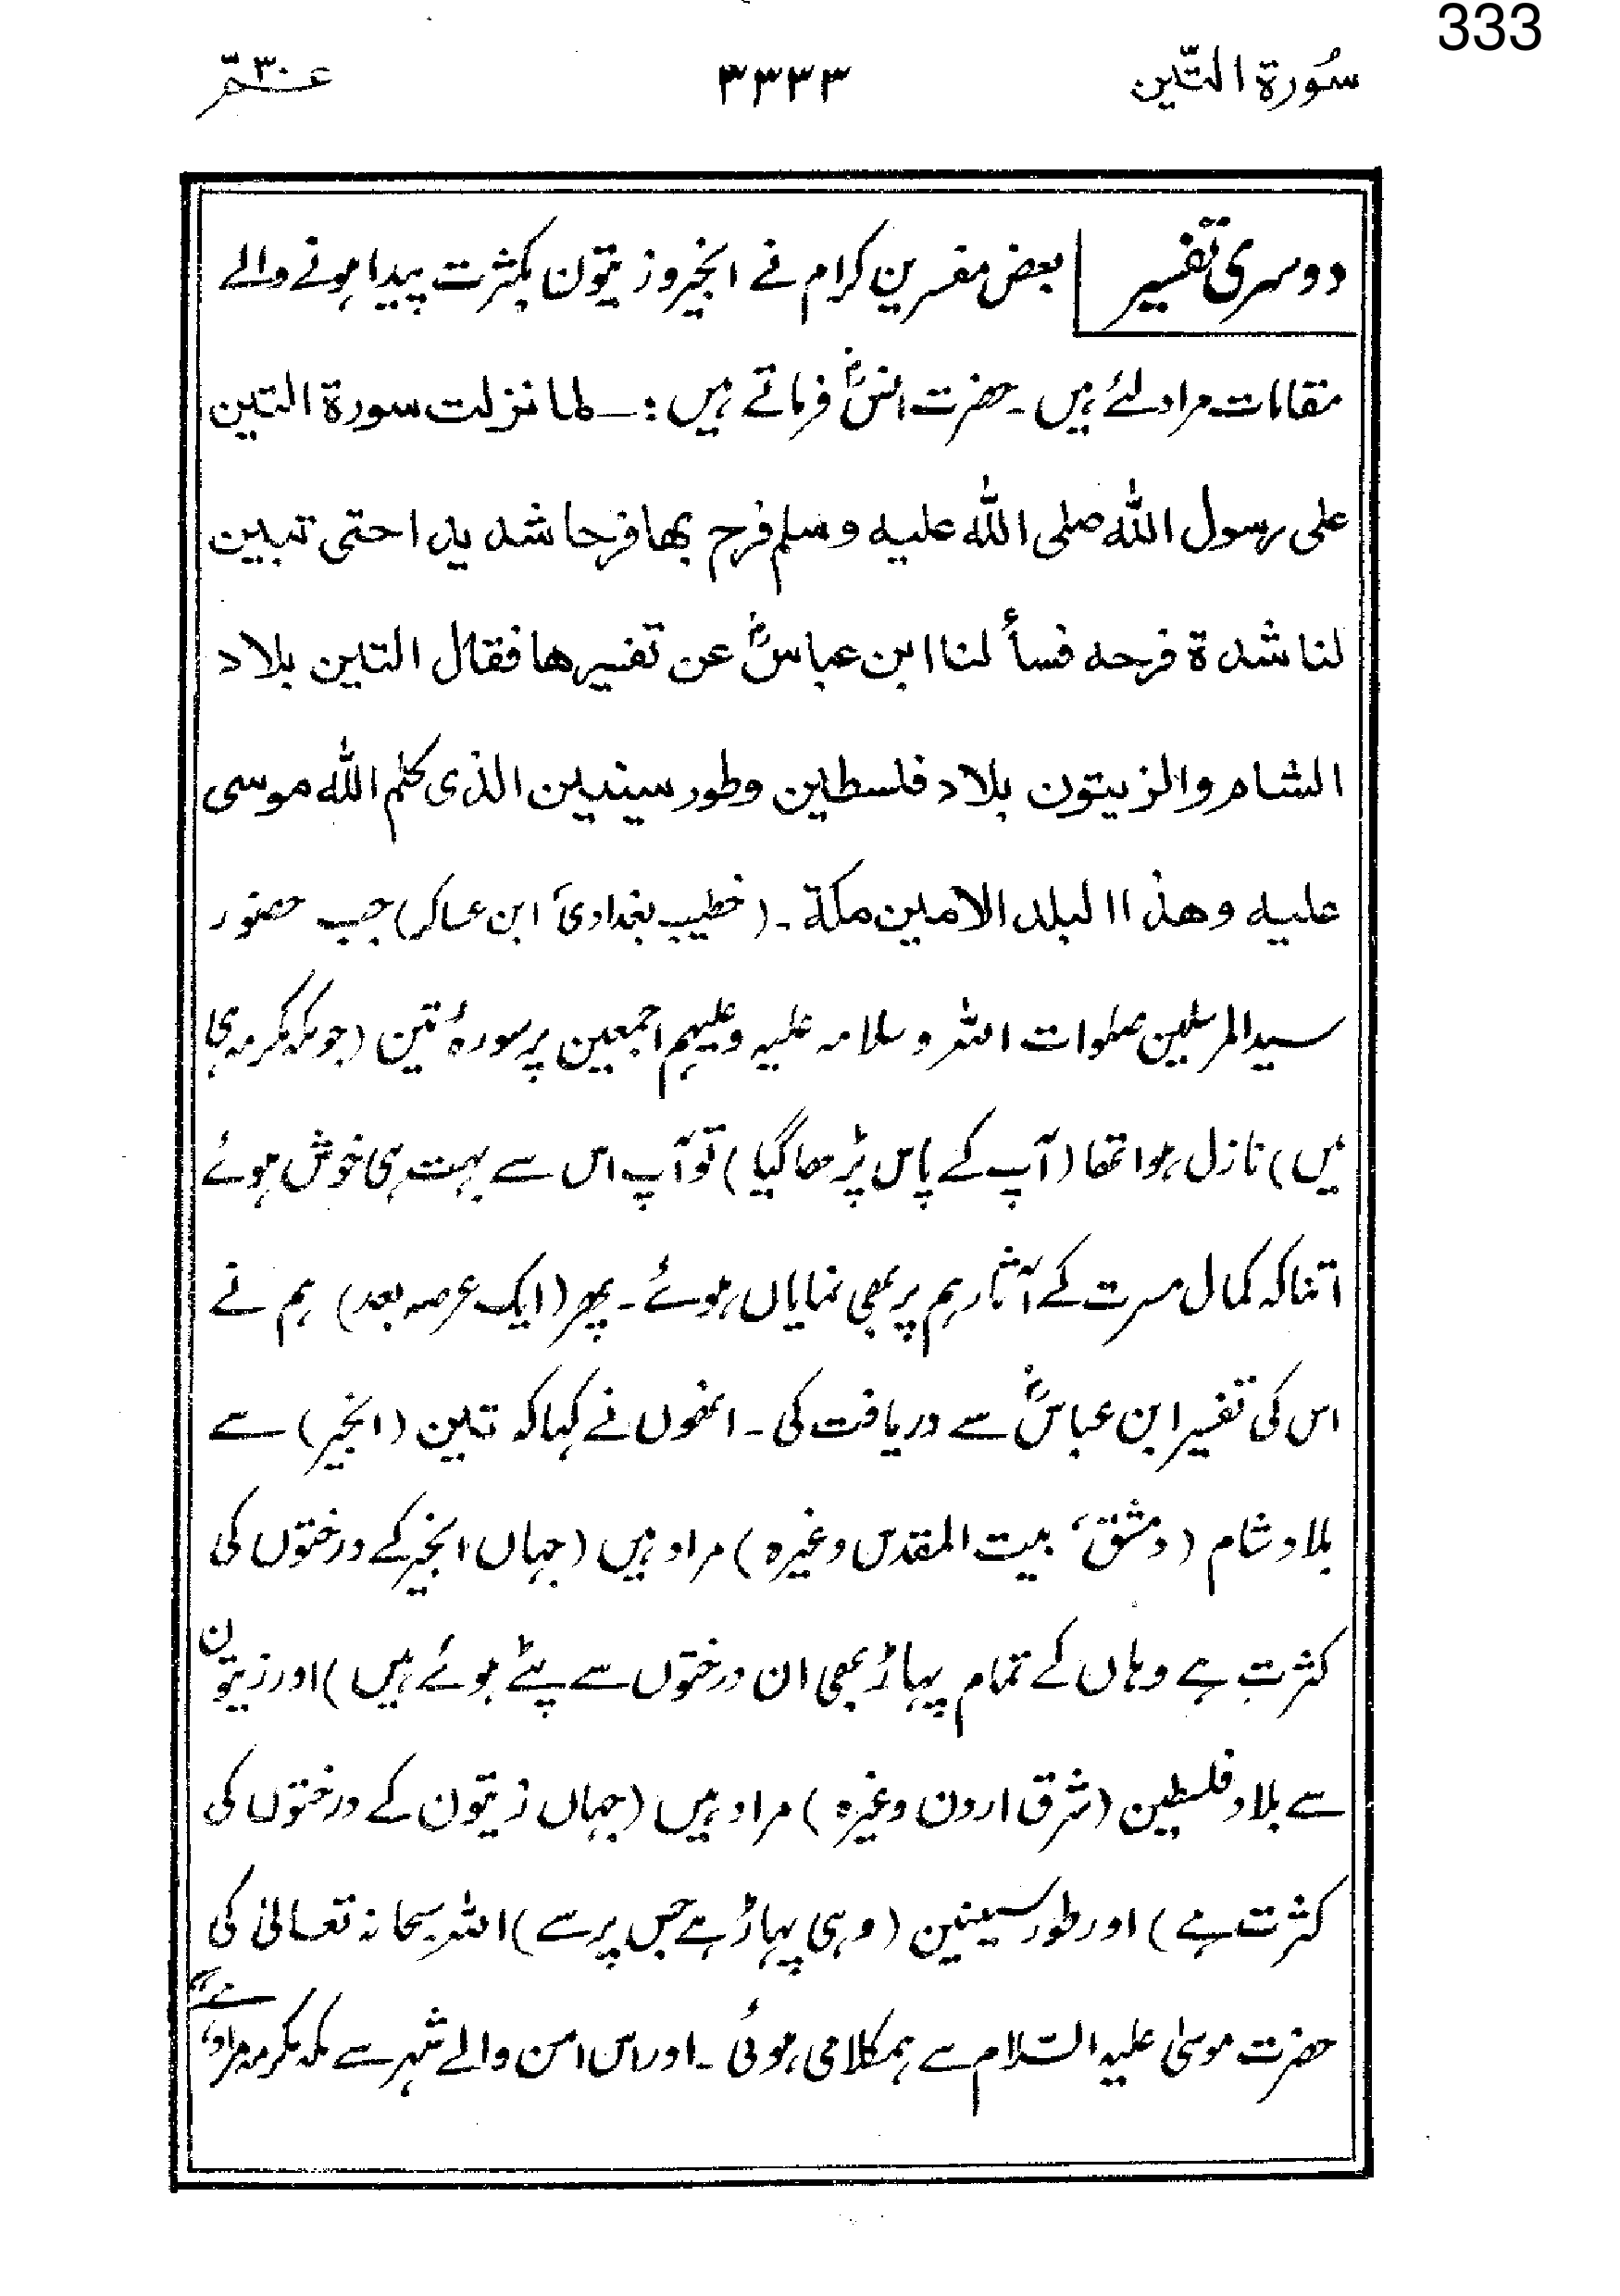 333
سُورة التّین ۳۳۳۳ عـمّ ۳۰
دوسری تفسیر بعض مفسرین کرام نے انجیر و زیتون بکثرت پیدا ہونے والے
مقامات مراد لئے ہیں۔ حضرت انسؓ فرماتے ہیں :۔ لما نزلت سورة التین
علی رسول اللہ صلی اللہ علیہ وسلم فرح بھا فرحا شدیدا حتی تبین
لنا شدة فرحہ فسألنا ابن عباسؓ عن تفسیرھا فقال التین بلاد
الشام والزیتون بلاد فلسطین وطور سینین الذی کلم اللہ موسی
علیہ وھذا البلد الامین مکة۔ (خطیب بغدادیؒ ابن عساکر) جب حضور
سیدالمرسلین صلوات اللہ وسلامہ علیہ وعلیہم اجمعین پر سورۂ تین (جو مکہ مکرمہ ہی
میں) نازل ہوا تھا (آپ کے پاس پڑھا گیا) تو آپ اس سے بہت ہی خوش ہوئے
اتنا کہ کمال مسرت کے آثار ہم پر بھی نمایاں ہوئے۔ پھر (ایک عرصہ بعد) ہم نے
اس کی تفسیر ابن عباسؓ سے دریافت کی۔ انھوں نے کہا کہ تین (انجیر) سے
بلاد شام (دمشق، بیت المقدس وغیرہ) مراد ہیں (جہاں انجیر کے درختوں کی
کثرت ہے وہاں کے تمام پہاڑ بھی ان درختوں سے پٹے ہوئے ہیں) اور زیتون
سے بلاد فلسطین (شرق اردن وغیرہ) مراد ہیں (جہاں زیتون کے درختوں کی
کثرت ہے) اور طور سینین (وہی پہاڑ ہے جس پر سے) اللہ سبحانہ تعالیٰ کی
حضرت موسیٰ علیہ السّلام سے ہمکلامی ہوئی۔ اور اس امن والے شہر سے مکہ مکرمہ مراد ہے"